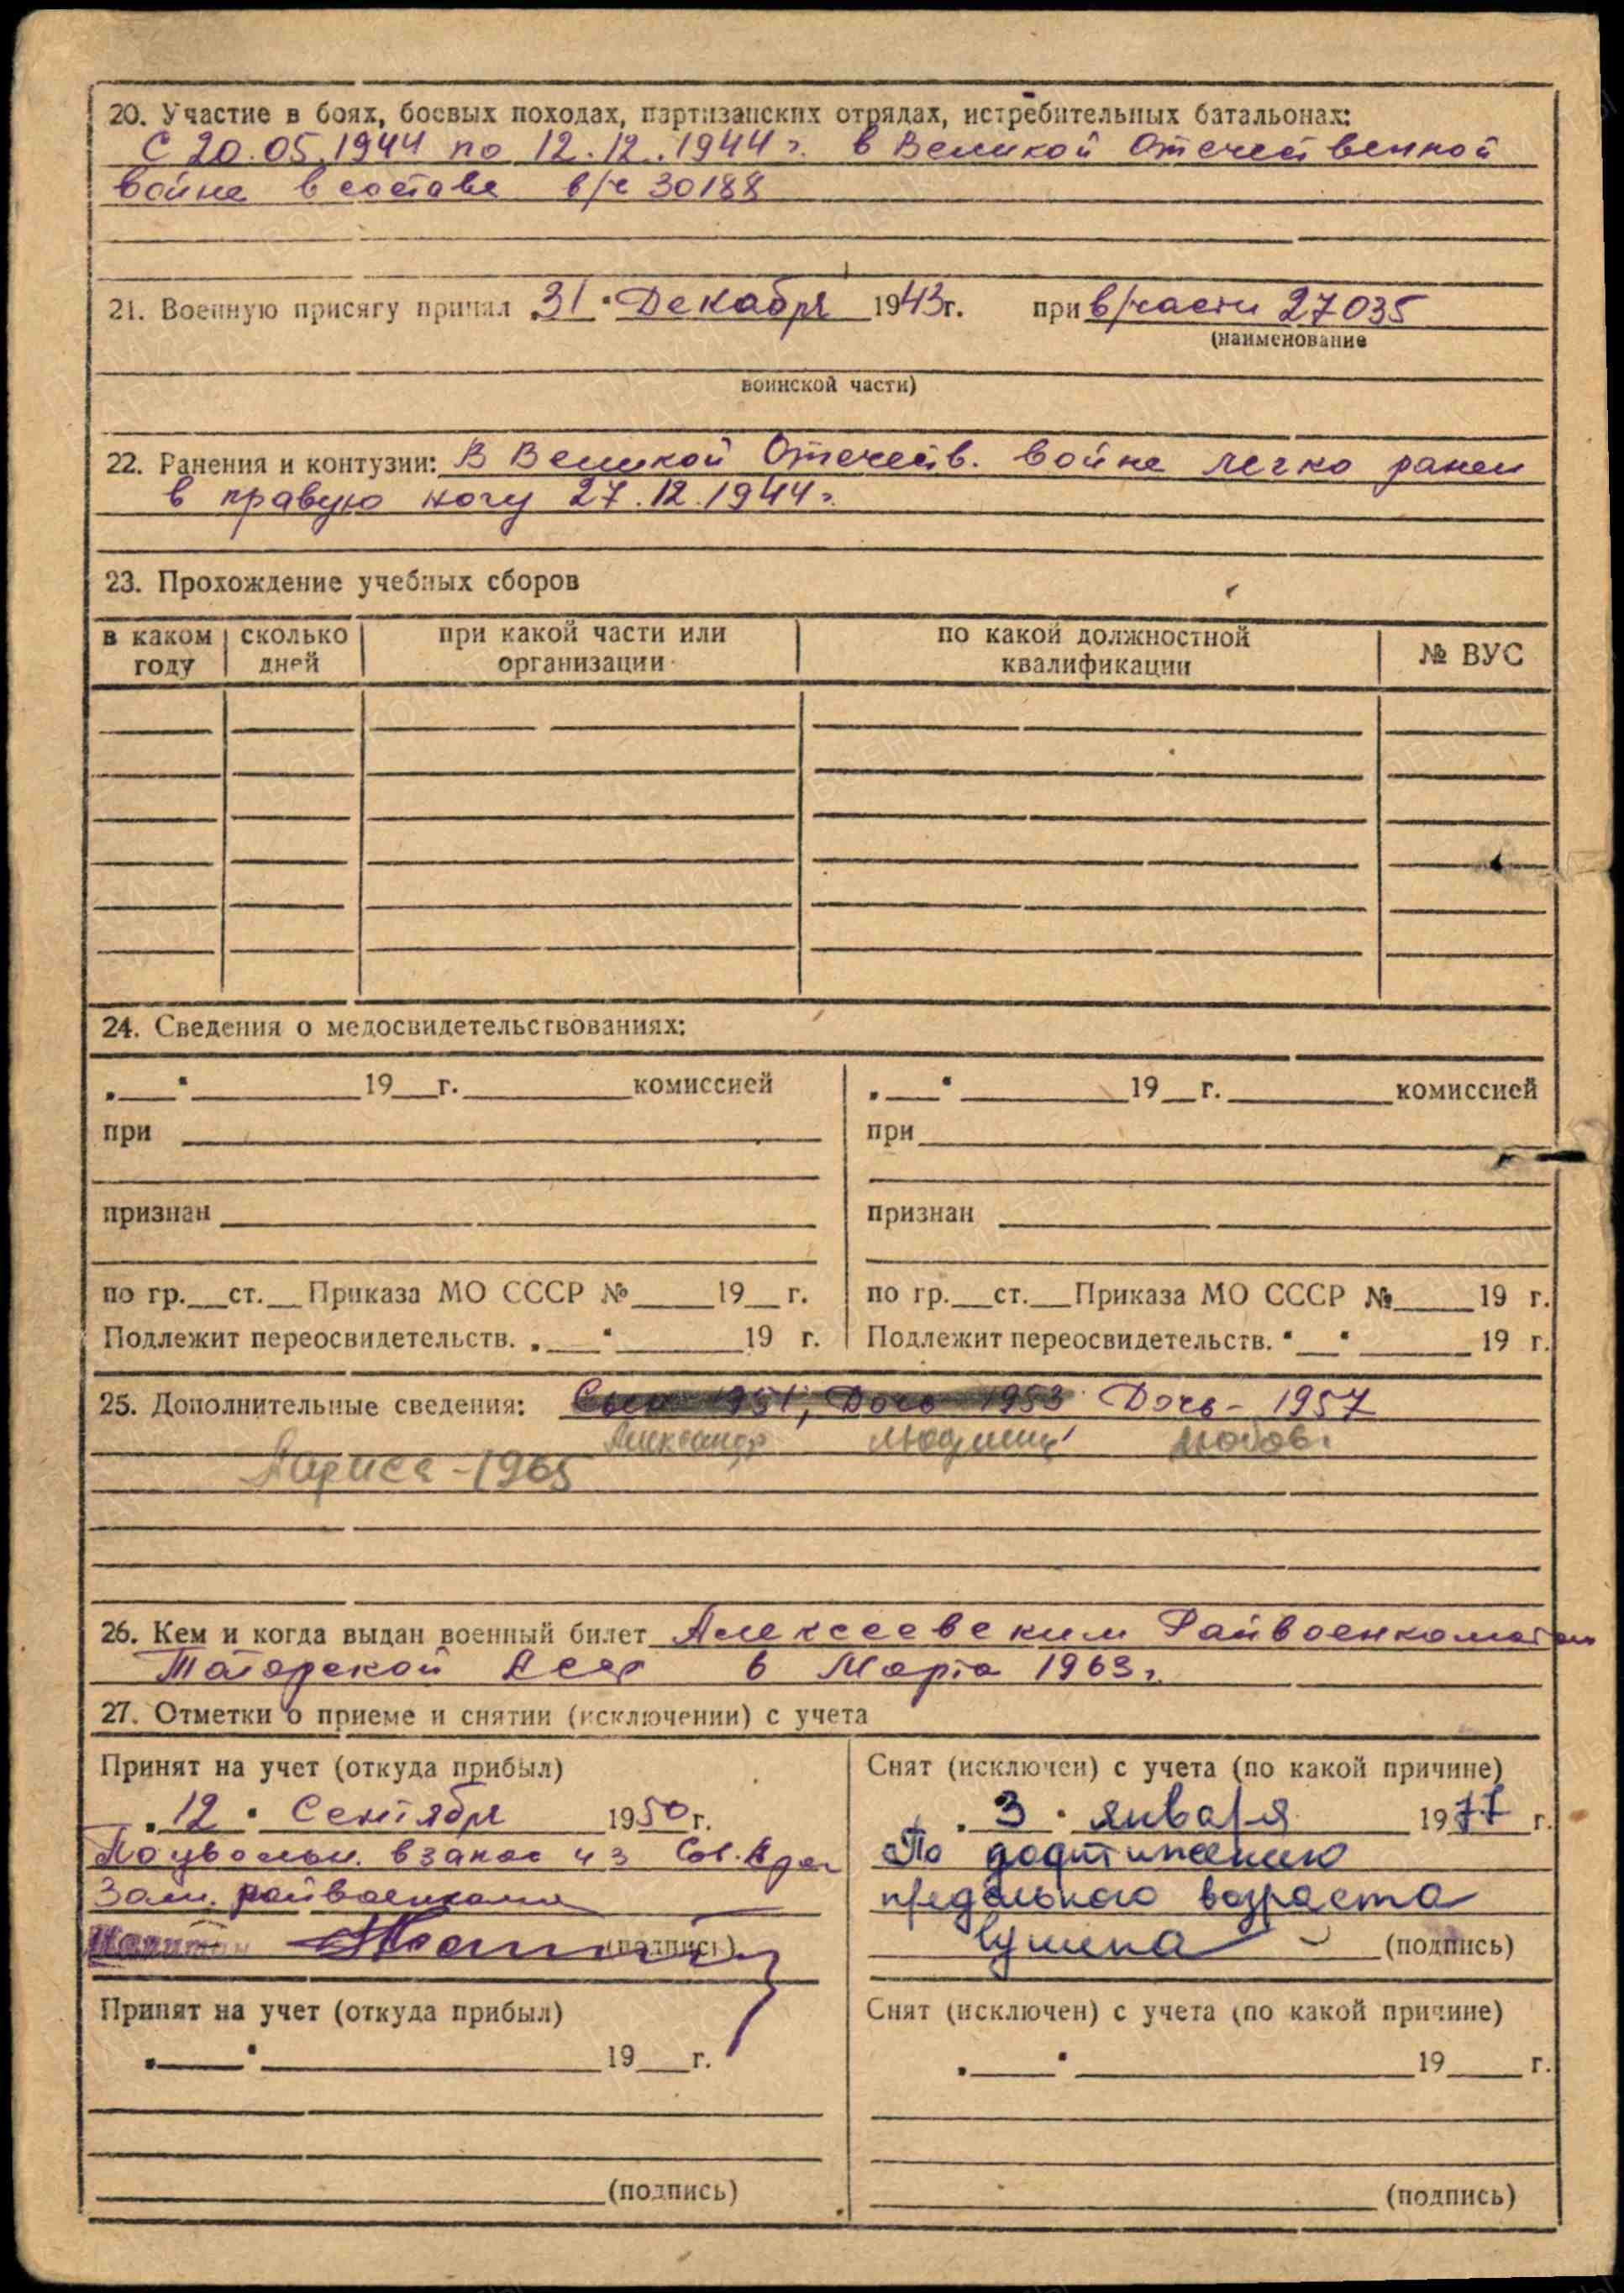 20. Участие в боях, боевых походах, партизанских отрядах, истребительных батальонах:
С 20.05.1944 по 12.12.1944 г. в Великой Отечественной
войне в составе в/ч 30188
21. Военную присягу принял „31" Декабря 1943г. при в/части 27035
(наименование
воинской части)
22. Ранения и контузии: В Великой Отечеств. войне легко ранен
в правую ногу 27.12.1944 г.
23. Прохождение учебных сборов
в каком году | сколько дней | при какой части или организации | по какой должностной квалификации | № ВУС
24. Сведения о медосвидетельствованиях:
„___" ________ 19__г. ________ комиссией | „___" ________ 19__г. ________ комиссией
при | при
признан | признан
по гр.__ст.__Приказа МО СССР №____19__г. | по гр.__ст.__Приказа МО СССР №____19 г.
Подлежит переосвидетельств. „___" ______19 г. | Подлежит переосвидетельств. "___" ______19 г.
25. Дополнительные сведения: Сын 1951, Дочь 1953 Дочь - 1957
Александр Людмила Любовь
Лариса - 1965
26. Кем и когда выдан военный билет Алексеевским Райвоенкоматом
Татарской АССР в Марта 1963 г.
27. Отметки о приеме и снятии (исключении) с учета
Принят на учет (откуда прибыл) | Снят (исключен) с учета (по какой причине)
„12" Сентября 1950г. | „3" января 1977 г.
По увольн. в запас из Сов. | По достижению
Зам. райвоенкома | предельного возраста
Капитан (подпись) | (подпись)
Принят на учет (откуда прибыл) | Снят (исключен) с учета (по какой причине)
„___" ________ 19__г. | „___" ________ 19__ г.
(подпись) | (подпись)